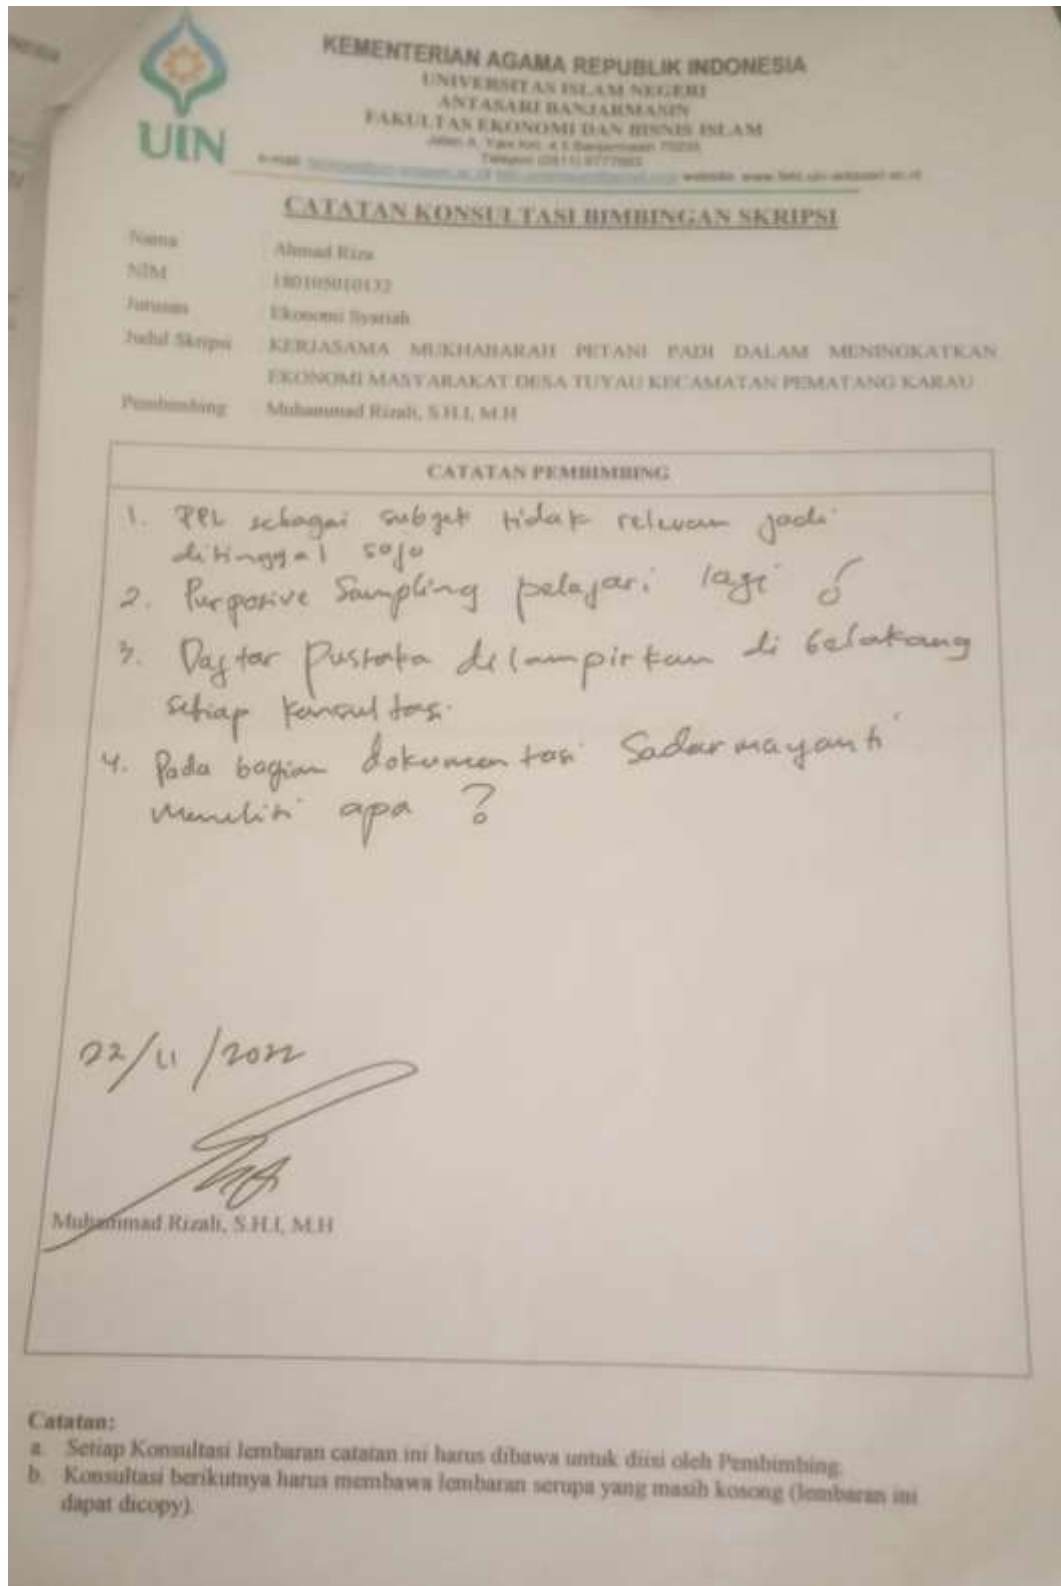 KEMENTERIAN AGAMA REPUBLIK INDONESIA
UNIVERSITAS ISLAM NEGERI
ANTASARI BANJARMASIN
FAKULTAS EKONOMI DAN BISNIS ISLAM
UIN
Jalan A. Yani Km. 4,5 Banjarmasin
e-mail: website:
CATATAN KONSULTASI BIMBINGAN SKRIPSI
Nama Ahmad Riza
NIM 180105010132
Jurusan Ekonomi Syariah
Judul Skripsi KERJASAMA MUKHABARAH PETANI PADI DALAM MENINGKATKAN
EKONOMI MASYARAKAT DESA TUYAU KECAMATAN PEMATANG KARAU
Pembimbing Muhammad Rizali, S.H.I, M.H
CATATAN PEMBIMBING
1. PPL sebagai subjek tidak relevan jadi
ditinggal saja
2. Purposive Sampling pelajari lagi !
3. Daftar Pustaka dilampirkan di belakang
setiap konsultasi.
4. Pada bagian dokumentasi Sadarmayanti
meneliti apa ?
22/11/2022
Muhammad Rizali, S.H.I, M.H
Catatan:
a. Setiap Konsultasi lembaran catatan ini harus dibawa untuk diisi oleh Pembimbing.
b. Konsultasi berikutnya harus membawa lembaran serupa yang masih kosong (lembaran ini
dapat dicopy).